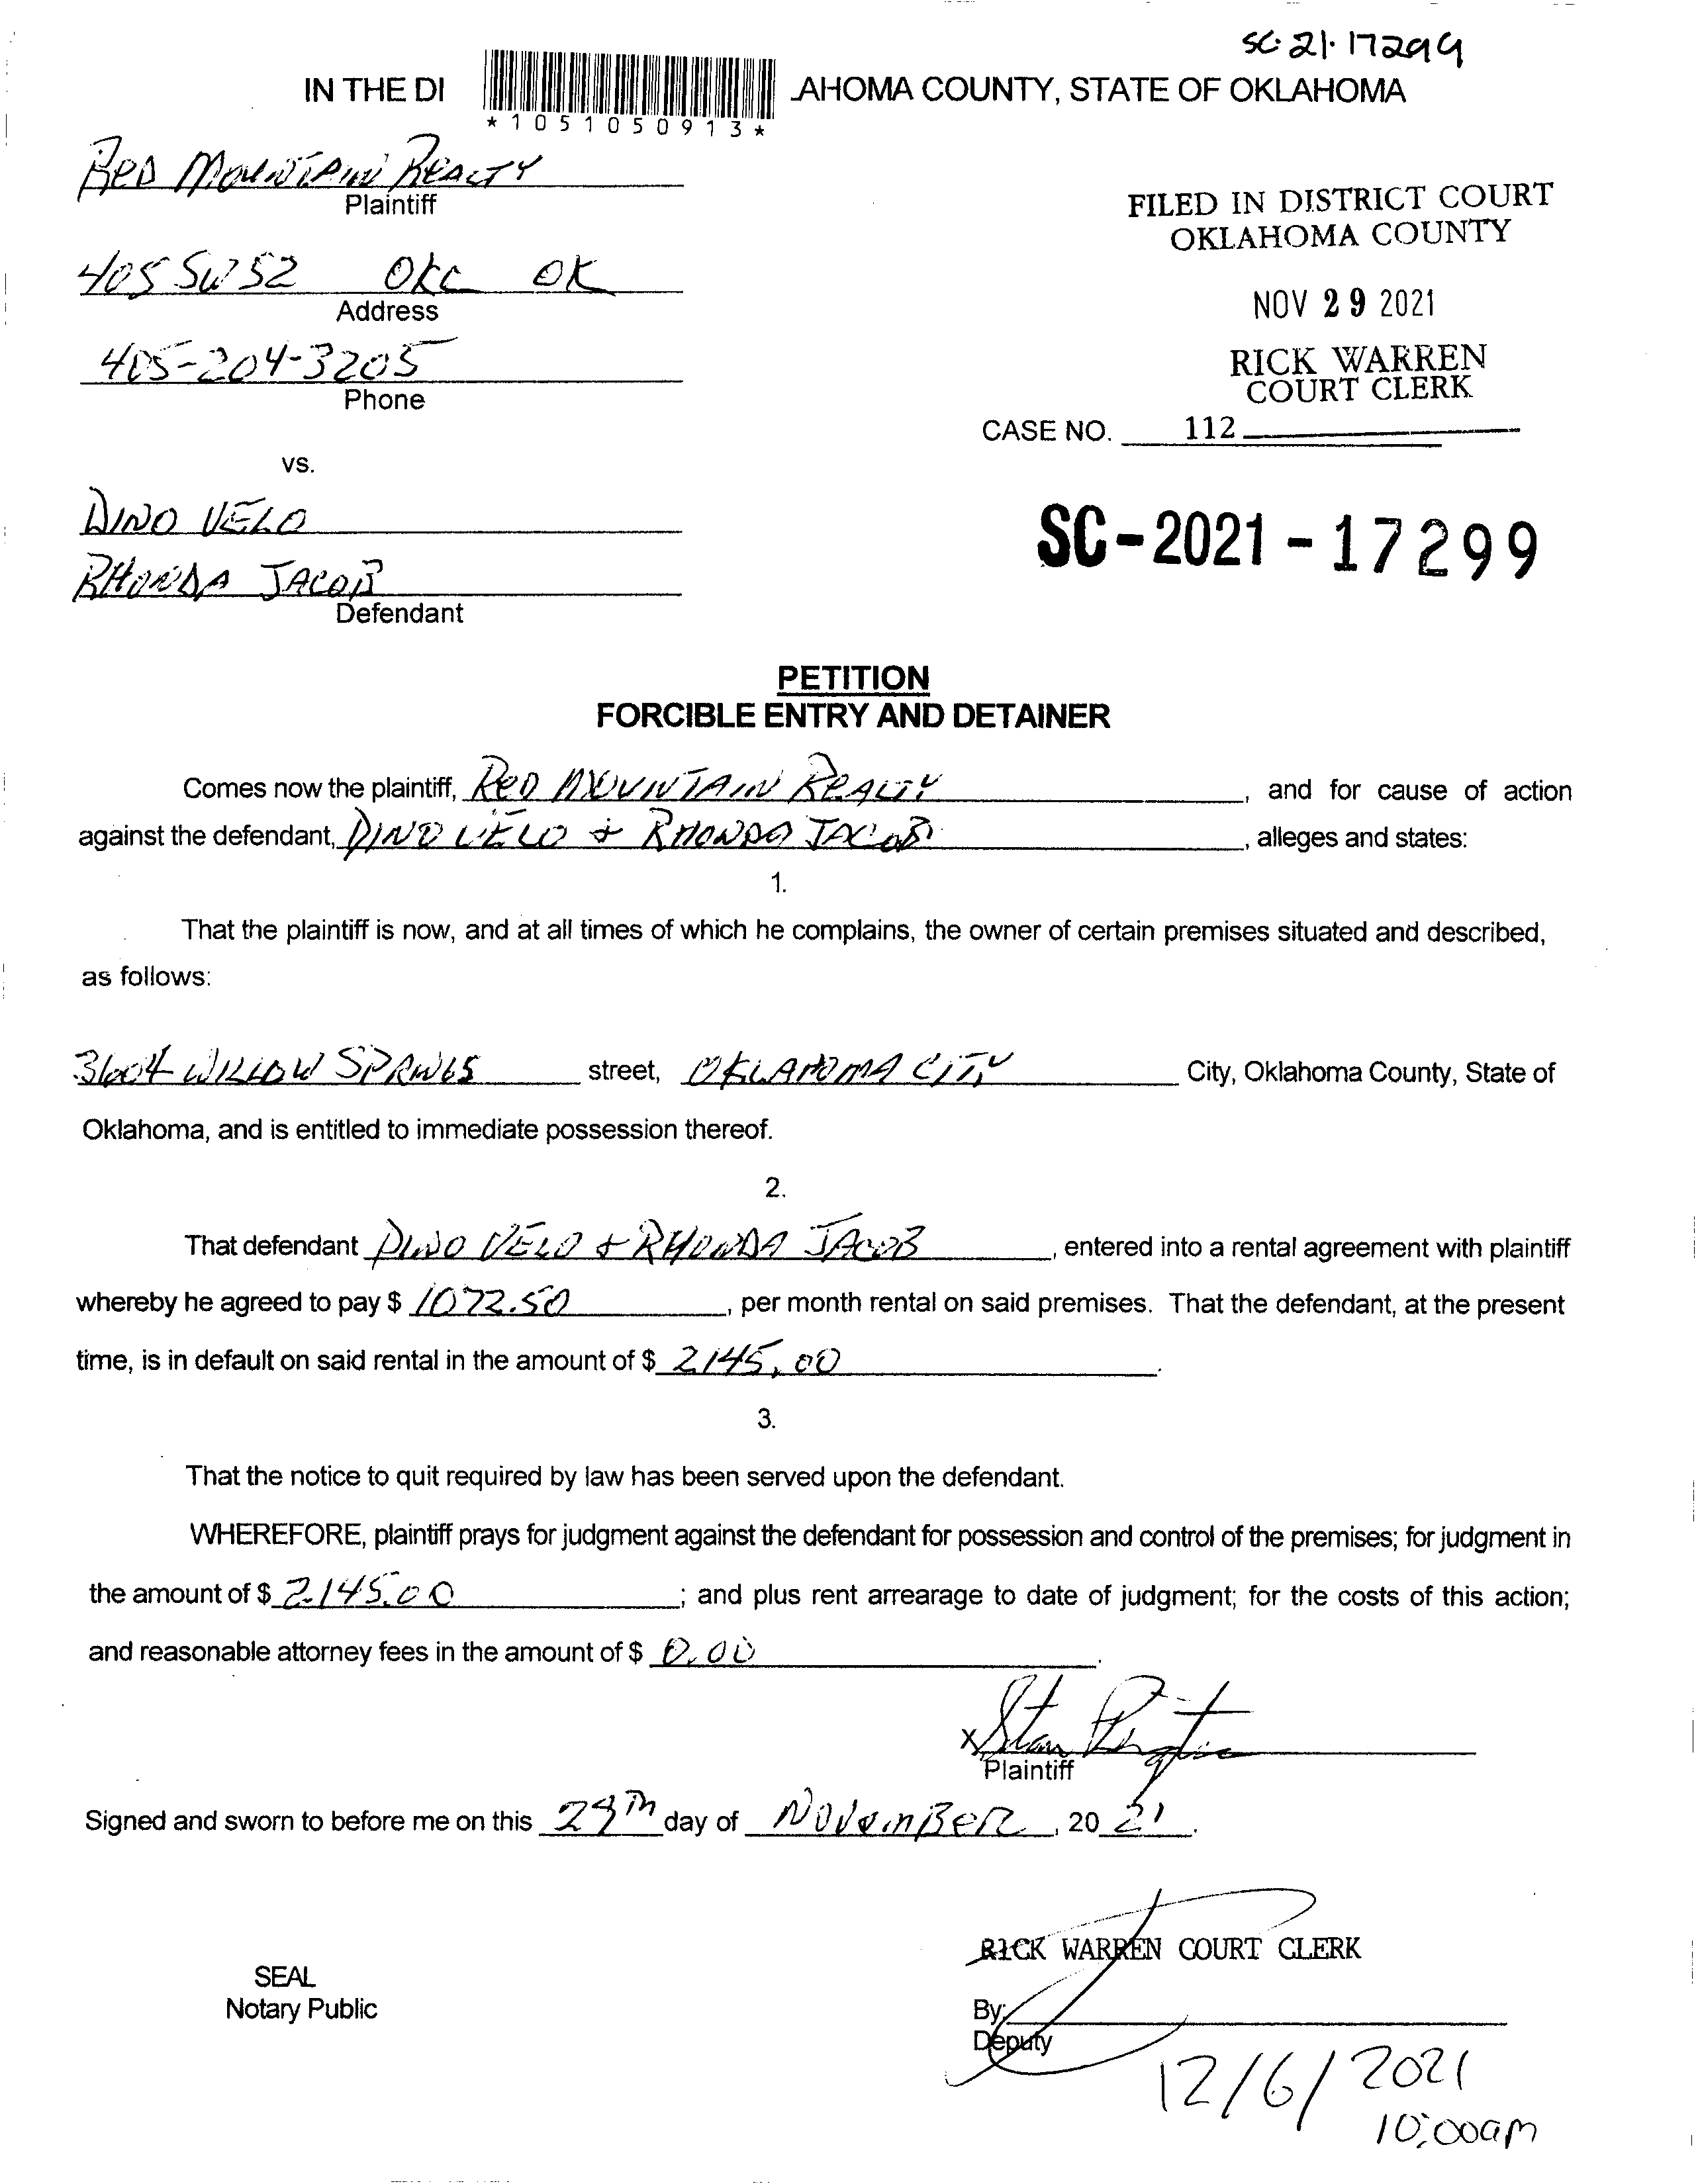 SC·21·17299
IN THE DI AHOMA COUNTY, STATE OF OKLAHOMA
*1051050913*
RED MOUNTAIN REALTY
Plaintiff
FILED IN DISTRICT COURT
OKLAHOMA COUNTY
405 SW 52 OKC OK
Address
NOV 29 2021
405-204-3205
Phone
RICK WARREN
COURT CLERK
CASE NO. 112
vs.
DINO VELO
SC-2021-17299
RHONDA JACOB
Defendant
PETITION
FORCIBLE ENTRY AND DETAINER
Comes now the plaintiff, RED MOUNTAIN REALTY, and for cause of action
against the defendant, DINO VELO + RHONDA JACOB, alleges and states:
1.
That the plaintiff is now, and at all times of which he complains, the owner of certain premises situated and described,
as follows:
3604 WILLOW SPRINGS street, OKLAHOMA CITY City, Oklahoma County, State of
Oklahoma, and is entitled to immediate possession thereof.
2.
That defendant DINO VELO + RHONDA JACOB, entered into a rental agreement with plaintiff
whereby he agreed to pay $ 1072.50, per month rental on said premises. That the defendant, at the present
time, is in default on said rental in the amount of $ 2145.00.
3.
That the notice to quit required by law has been served upon the defendant.
WHEREFORE, plaintiff prays for judgment against the defendant for possession and control of the premises; for judgment in
the amount of $ 2145.00; and plus rent arrearage to date of judgment; for the costs of this action;
and reasonable attorney fees in the amount of $ 0.00.
X Stan
Plaintiff
Signed and sworn to before me on this 29TH day of NOVEMBER, 20 21.
RICK WARREN COURT CLERK
SEAL
Notary Public
By:
Deputy
12/6/2021
10:00am